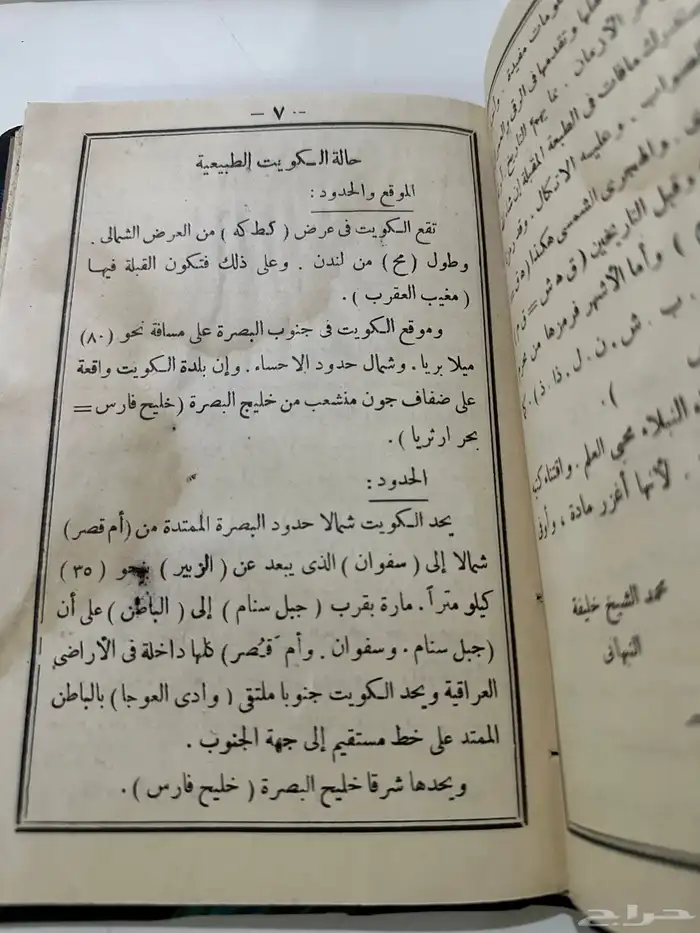 — ٧ —
حالة الكويت الطبيعية
الموقع والحدود :
تقع الكويت فى عرض ( كط كه ) من العرض الشمالى .
وطول ( مح ) من لندن . وعلى ذلك فتكون القبلة فيها
( مغيب العقرب ) .
وموقع الكويت فى جنوب البصرة على مسافة نحو ( ٨٠ )
ميلا بريا . وشمال حدود الاحساء . وإن بلدة الكويت واقعة
على ضفاف جون منشعب من خليج البصرة ( خليج فارس =
بحر ارثريا ) .
الحدود :
يحد الكويت شمالا حدود البصرة الممتدة من ( أم قصر )
شمالا إلى ( سفوان ) الذى يبعد عن ( الزبير ) بنحو ( ٣٥ )
كيلو متراً . مارة بقرب ( جبل سنام ) إلى ( الباطن ) على أن
( جبل سنام . وسفوان . وأم قصر ) كلها داخلة فى الأراضى
العراقية ويحد الكويت جنوبا ملتقى ( وادى العوجا ) بالباطن
الممتد على خط مستقيم إلى جهة الجنوب .
ويحدها شرقا خليج البصرة ( خليح فارس ) .
ومات مفيدة
وتقدمها فى الرقى
الأزمان . مما يهم التاريخ
مافات فى الطبعة المقبلة إن شاء
الصواب . وعليه الاتكال .
والهجرى الشمسى هكذا
وقبل التاريخين ( ق ه ش =
) وأما الأشهر فرمزها من
ب . ش . ن . ل . ذا . ذ ) .
) .
النبلاء محبى العلم . واقتناء كتب
لأنها أغزر مادة ، وأوفى
محمد الشيخ خليفة
النبهانى
حراج